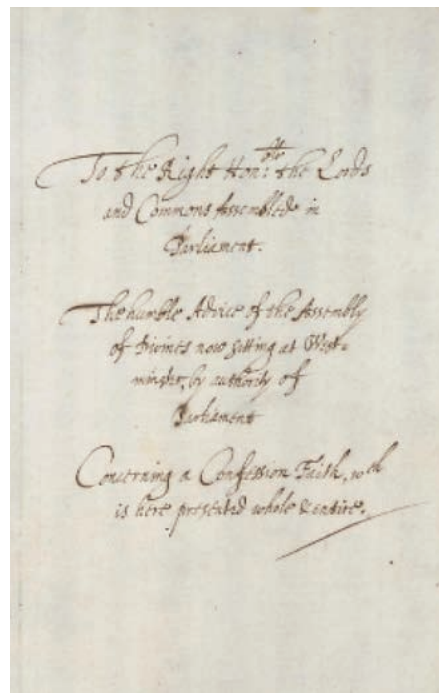 To the Right Hon:ble the Lords
and Commons Assembled in
Parliament.
The humble Advice of the Assembly
of Divines now sitting at West-
minster, by authority of
Parliament
Concerning a Confession Faith, wch
is here presented whole & entire.